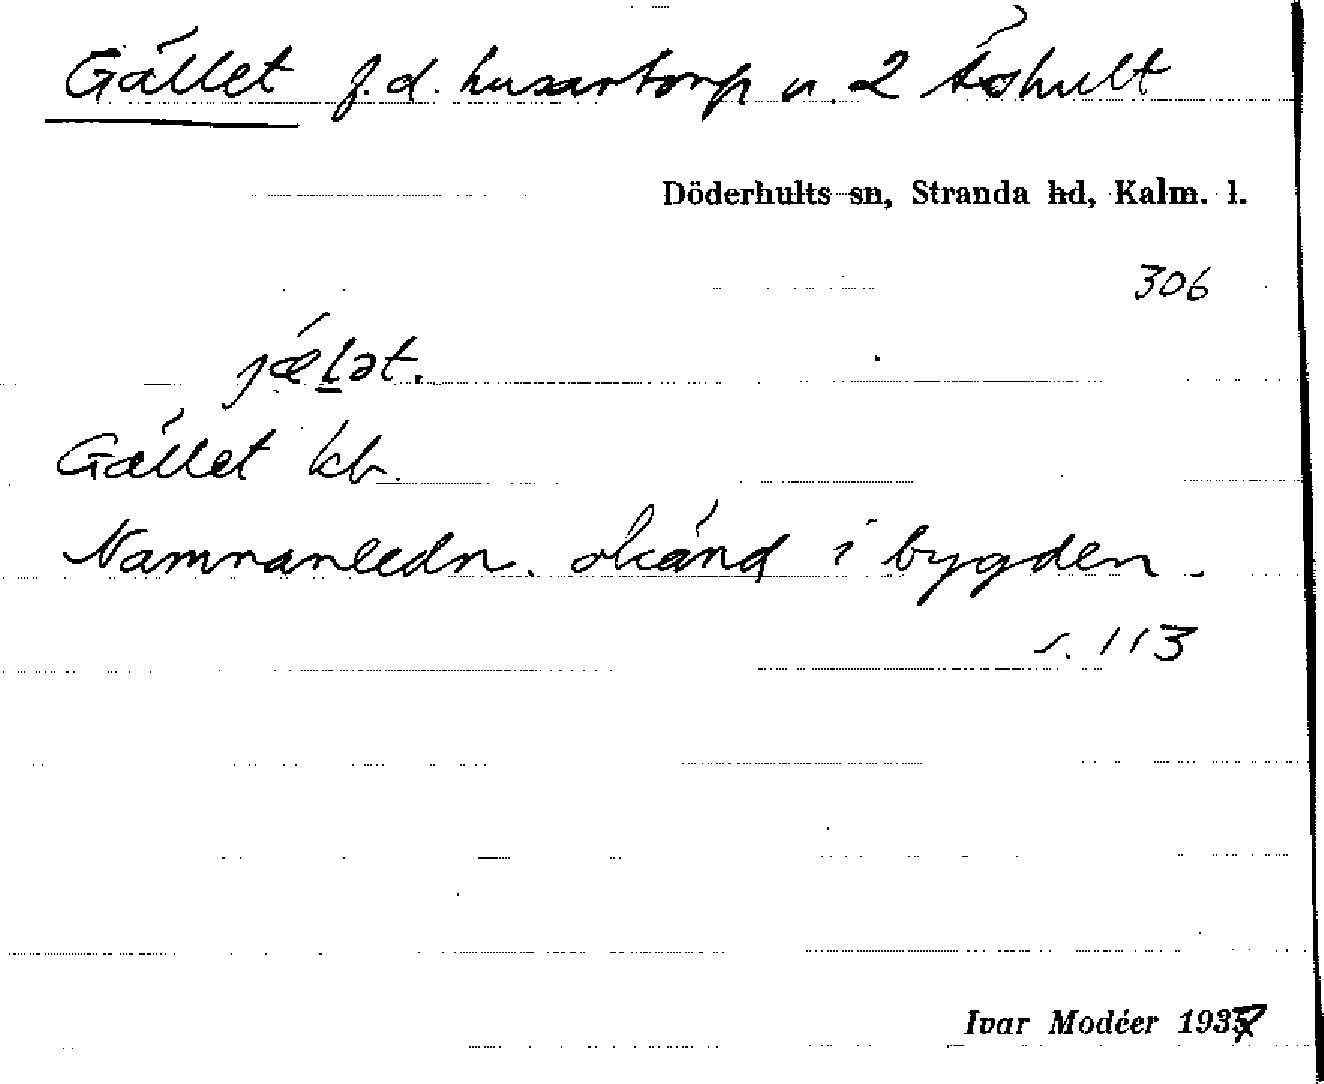 Gället f.d. husartorp u. 2 Åshult
Döderhults sn, Stranda hd, Kalm. l.
306
jæ̀lət.
Gället kb.
Namnanledn. okänd i bygden.
s. 113
Ivar Modéer 1937